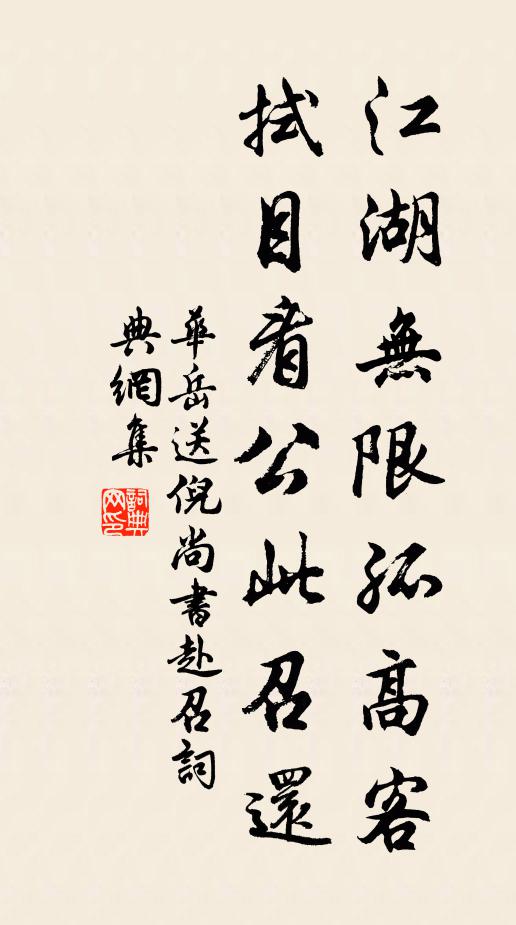 江湖無限孤高客
拭目看公此召還
華岳送倪尚書赴召詞
典網集
詞典網印